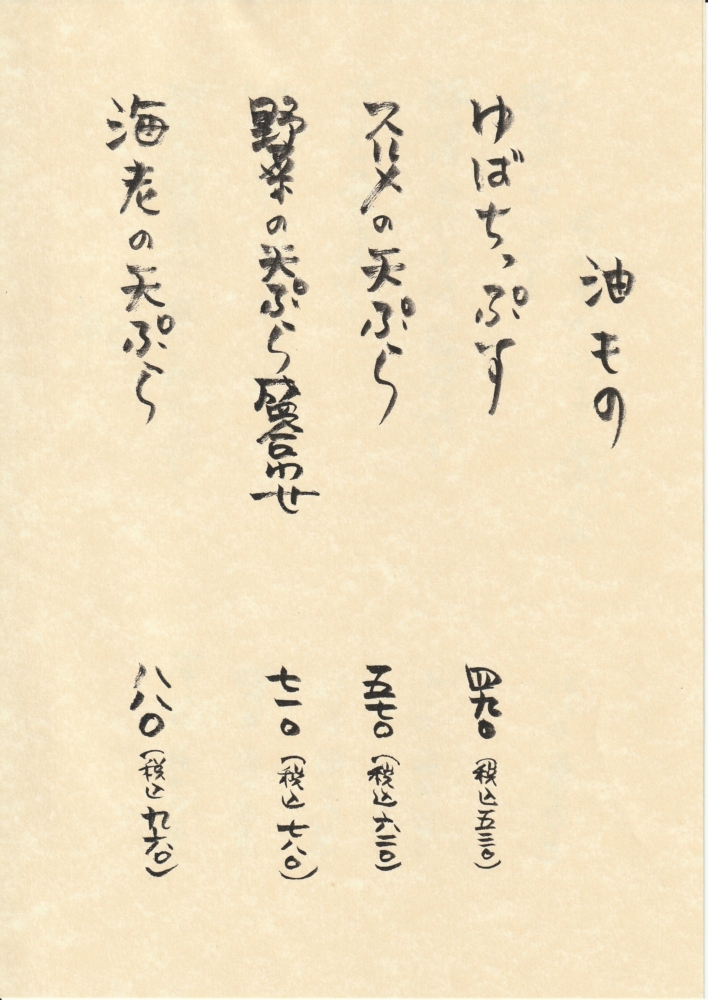 油もの
ゆばちっぷす 四九〇(税込五三〇)
スルメの天ぷら 五七〇(税込六二〇)
野菜の天ぷら盛合わせ 七一〇(税込七八〇)
海老の天ぷら 八八〇(税込九六〇)